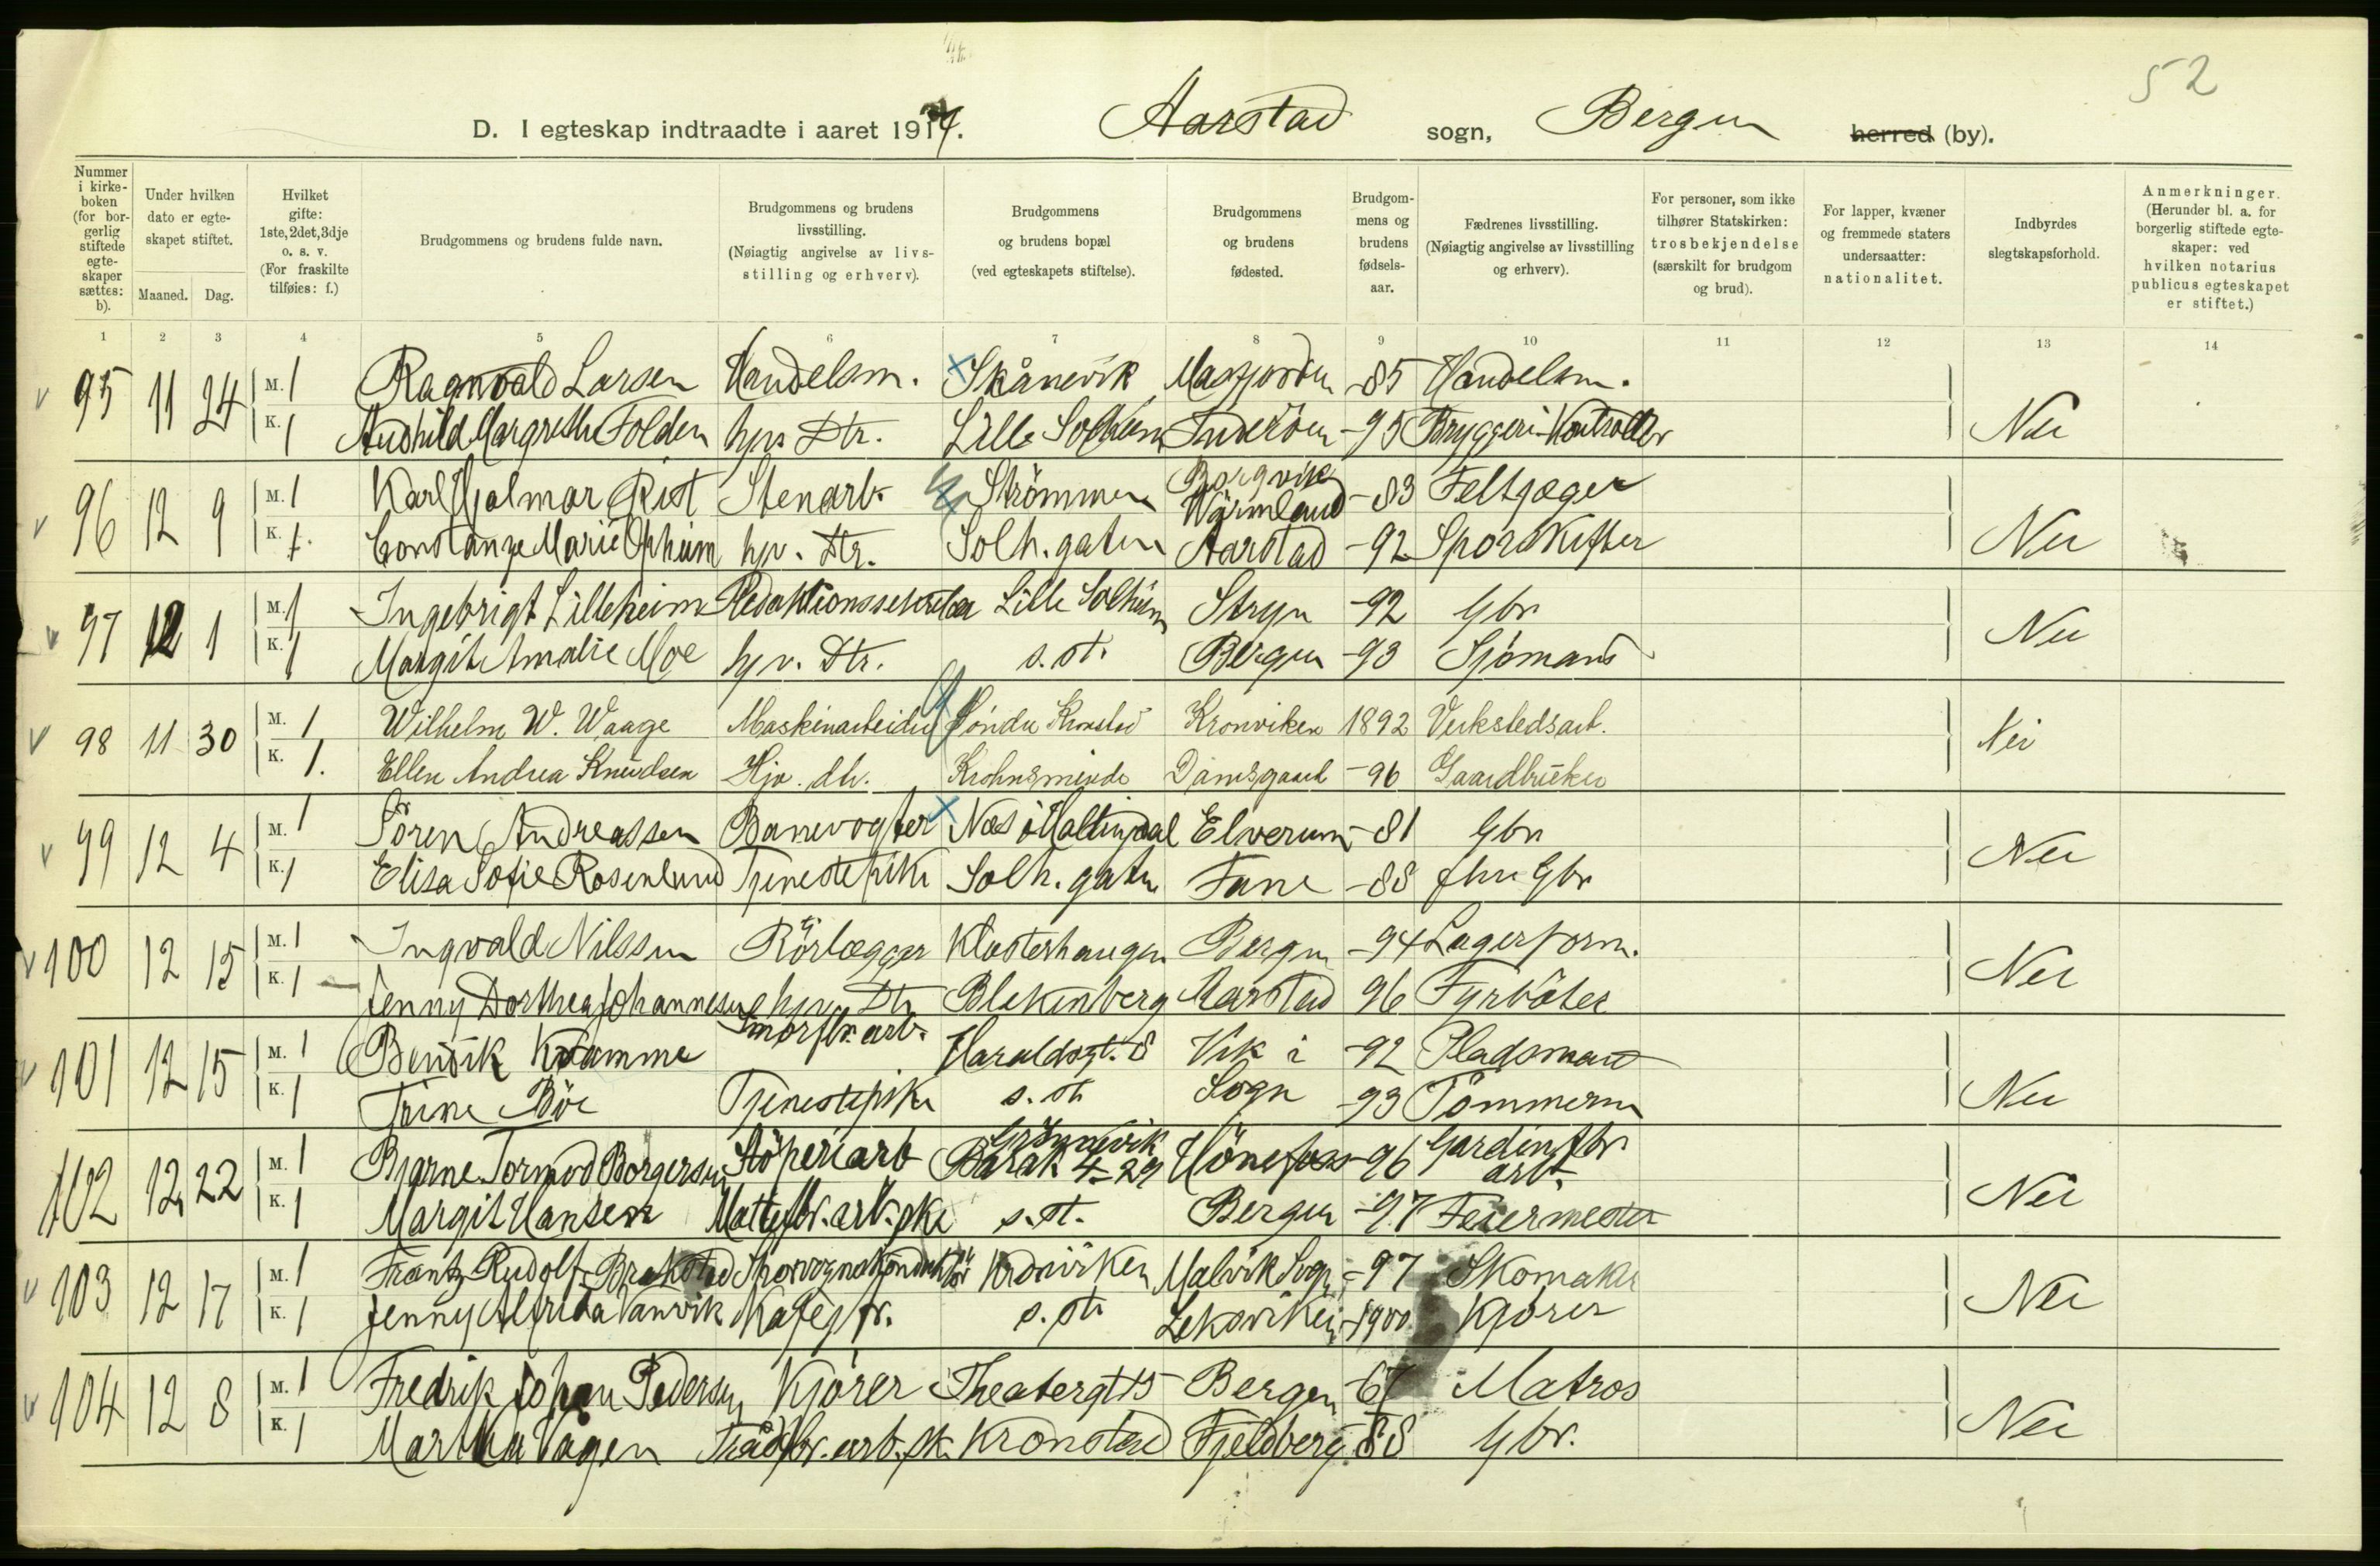 52
D. I egteskap indtraadte i aaret 191 Aarstad sogn, Bergen herred (by).
Nummer i kirke-boken (for bor-gerlig stiftede egte-skaper sættes: b).
Under hvilken dato er egte-skapet stiftet.
Maaned. Dag.
Hvilket gifte: 1ste, 2det, 3dje o. s. v. (For fraskilte tilføies: f.)
Brudgommens og brudens fulde navn.
Brudgommens og brudens livsstilling. (Nøiagtig angivelse av livs-stilling og erhverv).
Brudgommens og brudens bopæl (ved egteskapets stiftelse).
Brudgommens og brudens fødested.
Brudgom-mens og brudens fødsels-aar.
Fædrenes livsstilling. (Nøiagtig angivelse av livsstilling og erhverv).
For personer, som ikke tilhører Statskirken: trosbekjendelse (særskilt for brudgom og brud).
For lapper, kvæner og fremmede staters undersaatter: nationalitet.
Indbyrdes slegtskapsforhold.
Anmerkninger. (Herunder bl. a. for borgerlig stiftede egte-skaper: ved hvilken notarius publicus egteskapet er stiftet.)
1 2 3 4 5 6 7 8 9 10 11 12 13 14
95 11 24 M. 1 Ragnvald Larsen Handelsm. Skånevik Masfjorden -85 Handelsm.
K. 1 Audhild Margrethe Folden hjv. Dtr. Lille Solheim Inderöen -95 Bryggeri-Kontrollör Nei
96 12 9 M. 1 Karl Hjalmar Rist Stenarb. Strömmen Borgvik Wärmland -83 Feltjæger
K. 1. Constanze Marie Opheim hjv. Dtr. Solh.gaten Aarstad -92 Sporskifter Nei
97 12 1 M. 1 Ingebrigt Lilleheim Redaktionssekretær Lille Solheim Stryn -92 Gbr
K. 1 Margit Amalie Moe hjv. Dtr. s. st. Bergen -93 Sjömand Nei
98 11 30 M. 1 Wilhelm W. Waage Maskinarbeider Söndre Kronstad Kronviken 1892 Verkstedsarb.
K. 1. Ellen Andrea Knudsen Hjv. dtr. Krohnsminde Damsgaard -96 Gaardbruker Nei
99 12 4 M. 1 Sören Andreassen Banevogter Nes i Hallingdal Elverum -81 Gbr
K. 1 Elisa Sofie Rosenlund Tjenestepike Solh.gaten Fane -88 fhv Gbr. Nei
100 12 15 M. 1 Ingvald Nilssen Rörlægger Klosterhaugen Bergen -94 Lagerform.
K. 1 Jenny Dorthea Johannesen hjv. Dtr Blekenberg Aarstad 96 Fyrböter Nei
101 12 15 M. 1 Bendik Kvamme Smörfbr. arb. Haraldsgt. 8 Vik i -92 Pladsmand
K. 1 Trine Böe Tjenestepike s. st. Sogn -93 Tömmerm Nei
102 12 22 M. 1 Bjarne Tormod Borgersen Stöperiarb Grönnevik Barak 4-29 Hönefoss -96 Gardinfbr. arb.
K. 1 Margit Hansen Mattefbr. arb.pke s. st. Bergen -97 Feiermester Nei
103 12 17 M. 1 Frantz Rudolf Brekstad Sporvognskonduktör Kronviken Malvik Sogn -97 Skomaker
K. 1 Jenny Alfrida Vanvik Kafejfr. s. st. Leksviken -1900 Kjörer Nei
104 12 8 M. 1 Fredrik Johan Pedersen Kjörer Theatergt 15 Bergen -67 Matros
K. 1 Martha Vågen Trådfbr. arb. pk. Kronstad Fjeldberg -88 Gbr. Nei